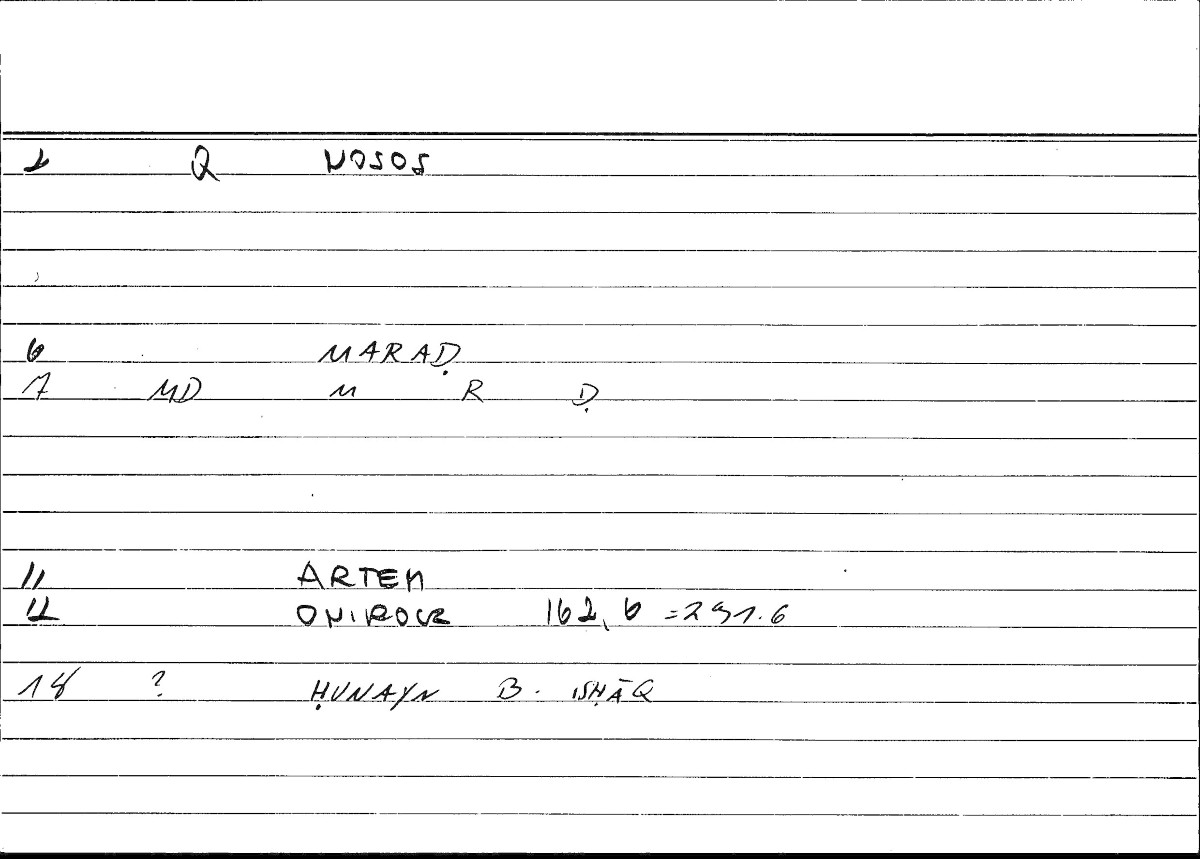 1 Q NOSOS
6 MARAḌ
7 MD M R Ḍ
11 ARTEM
12 ONIROCR 162, 6 = 291.6
14 ? ḤUNAYN B. ISḤĀQ